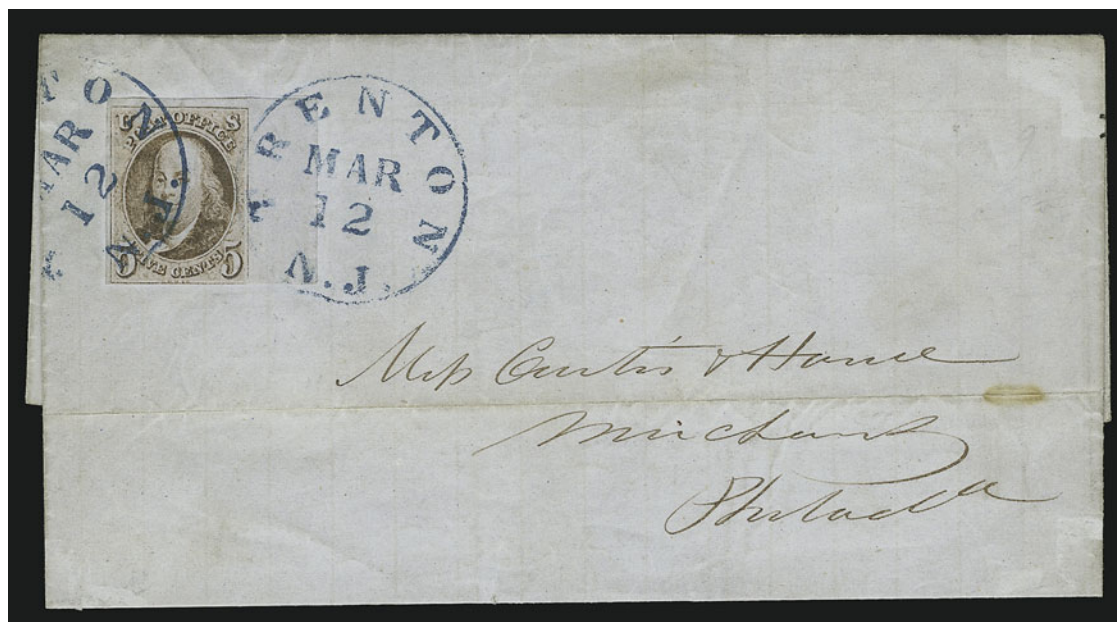 TON
MAR
12
N.J.
U S
POST OFFICE
5 FIVE CENTS 5
TRENTON
MAR
12
N.J.
Mess Curtis & Hance
Merchants
Philada